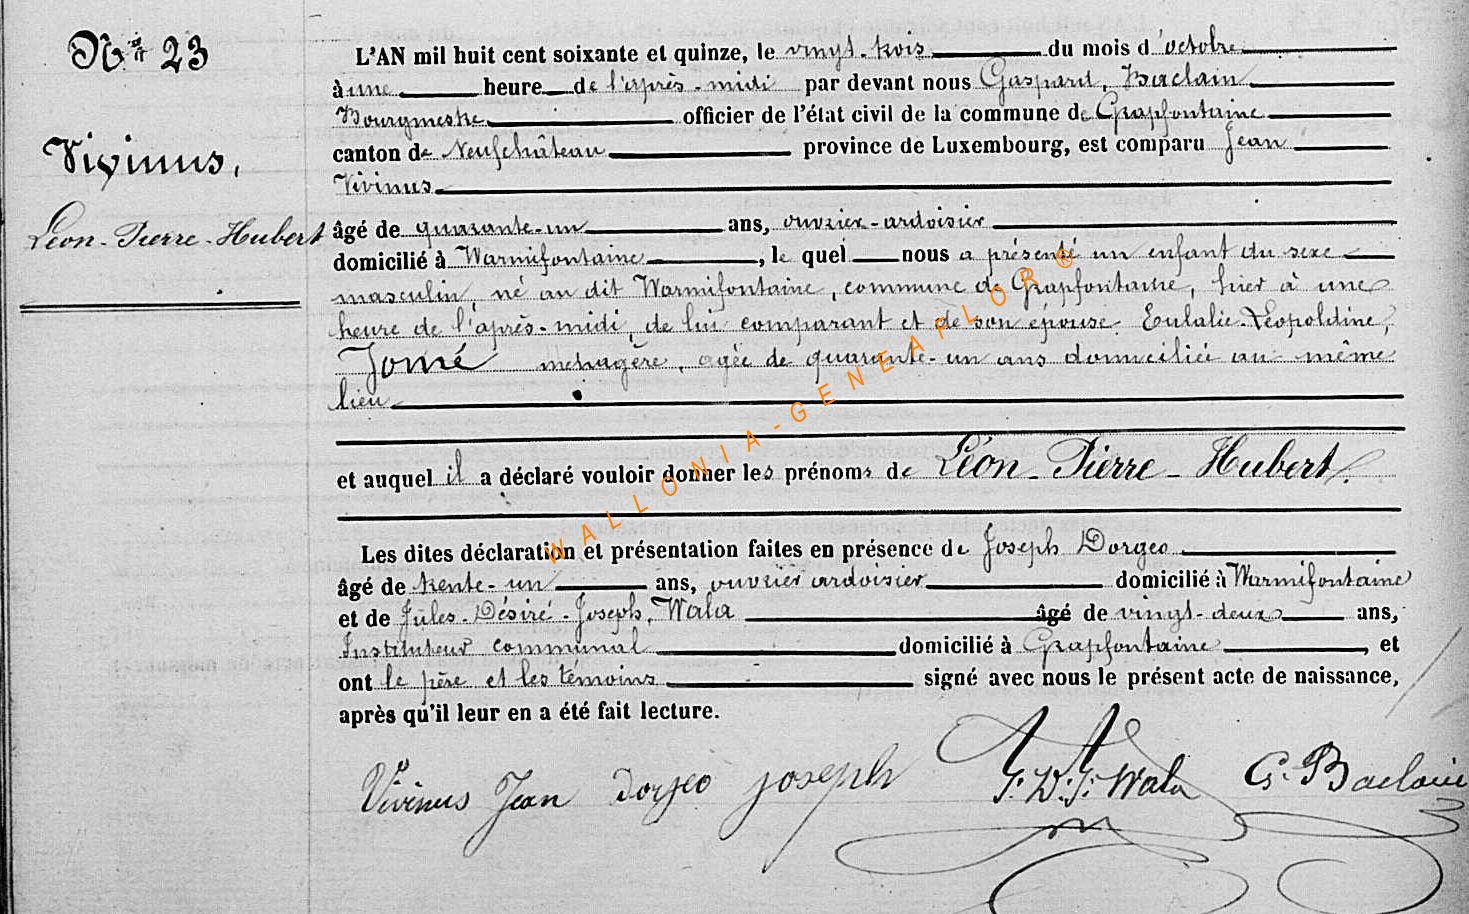 Nº 23
Vivinus,
Léon-Pierre-Hubert
L'AN mil huit cent soixante et quinze, le vingt-trois du mois d'octobre
à une heure de l'après-midi par devant nous Gaspard, Baclain
Bourgmestre officier de l'état civil de la commune de Grapfontaine
canton de Neufchâteau province de Luxembourg, est comparu Jean
Vivinus
âgé de quarante-un ans, ouvrier-ardoisier
domicilié à Warmifontaine, le quel nous a présenté un enfant du sexe
masculin, né au dit Warmifontaine, commune de Grapfontaine, hier à une
heure de l'après-midi, de lui comparant et de son épouse Eulalie-Léopoldine,
Jomé ménagère, agée de quarante-un ans domiciliée au même
lieu
et auquel il a déclaré vouloir donner les prénoms de Léon-Pierre-Hubert.
Les dites déclaration et présentation faites en présence de Joseph Dorgeo
âgé de trente-un ans, ouvrier ardoisier domicilié à Warmifontaine
et de Jules-Désiré-Joseph, Wala âgé de vingt-deux ans,
Instituteur communal domicilié à Grapfontaine, et
ont le père et les témoins signé avec nous le présent acte de naissance,
après qu'il leur en a été fait lecture.
Vivinus Jean Dorgeo joseph J. D. J. Wala G. Baclain
WALLONIA-GENEAPLOR®